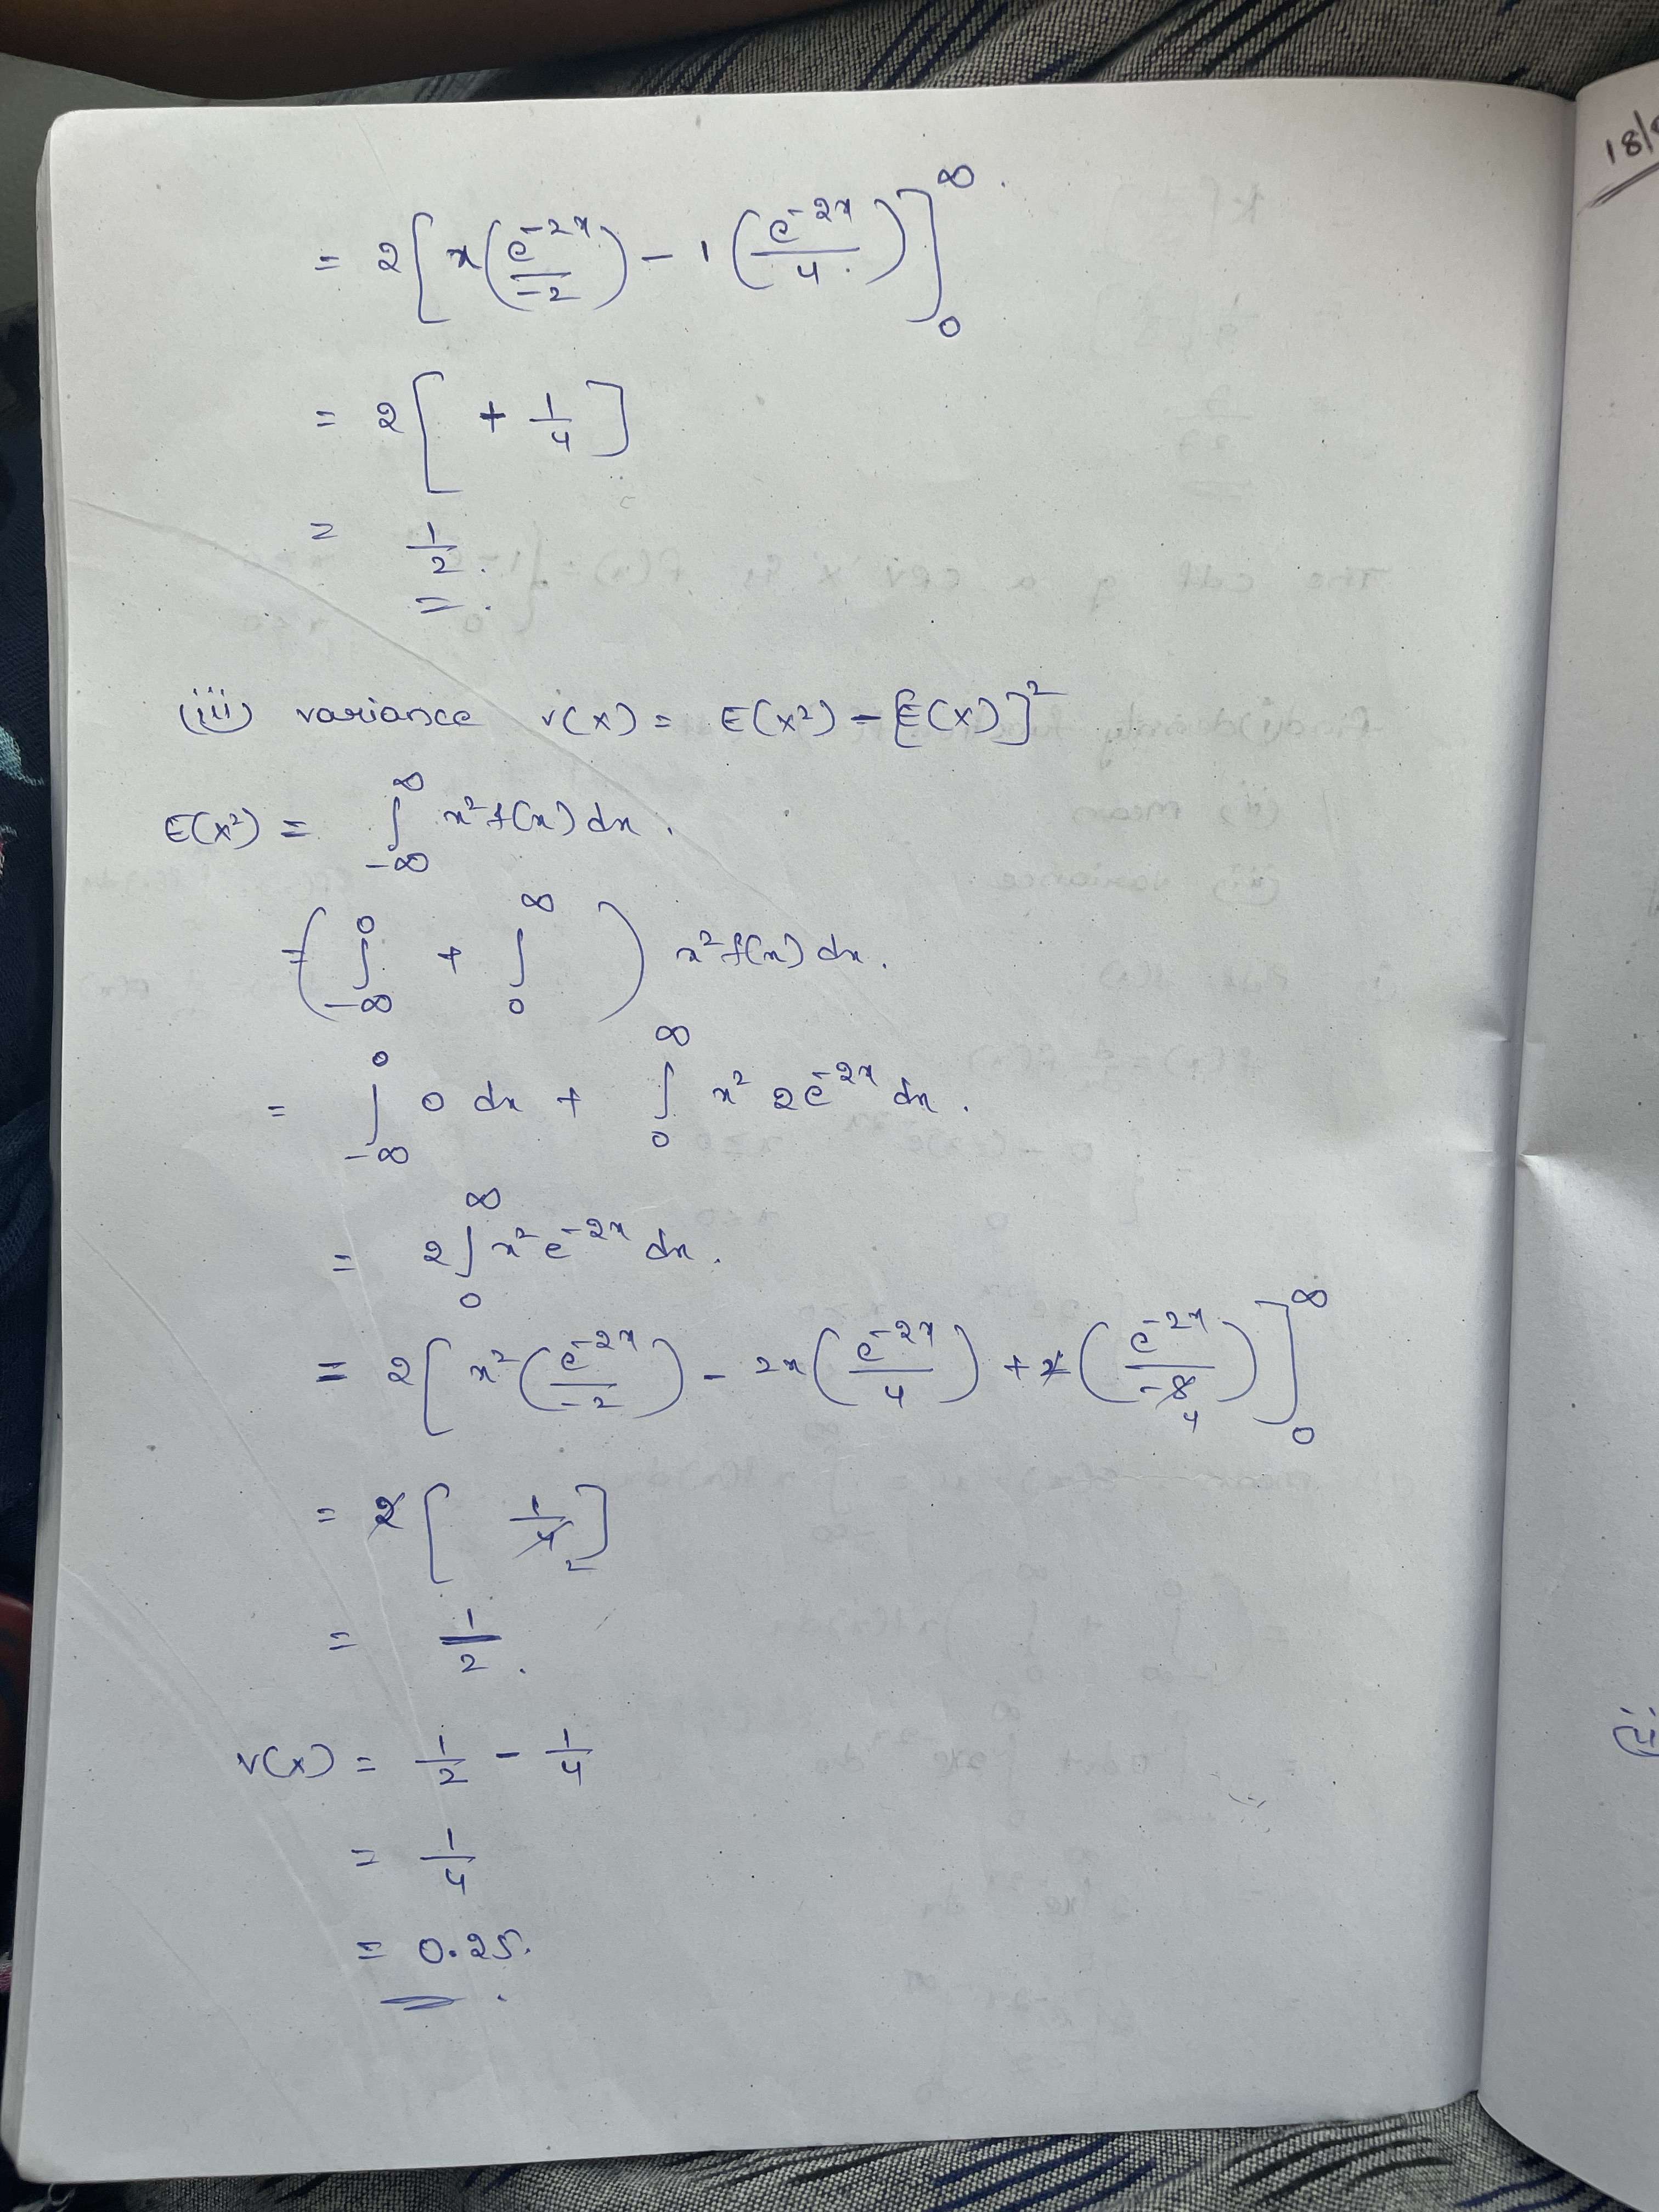 = 2[x(e^-2x/-2) - 1(e^-2x/4)]_0^∞.
= 2[ + 1/4]
= 1/2.
(iii) variance v(x) = E(x²) - [E(x)]²
E(x²) = ∫_-∞^∞ x² f(x) dx.
= (∫_-∞^0 + ∫_0^∞) x² f(x) dx.
= ∫_-∞^0 0 dx + ∫_0^∞ x² 2e^-2x dx.
= 2∫_0^∞ x² e^-2x dx.
= 2[x²(e^-2x/-2) - 2x(e^-2x/4) + 2(e^-2x/-8 4)]_0^∞
= 2[1/4 2]
= 1/2.
v(x) = 1/2 - 1/4
= 1/4
= 0.25.
18/
(ii)